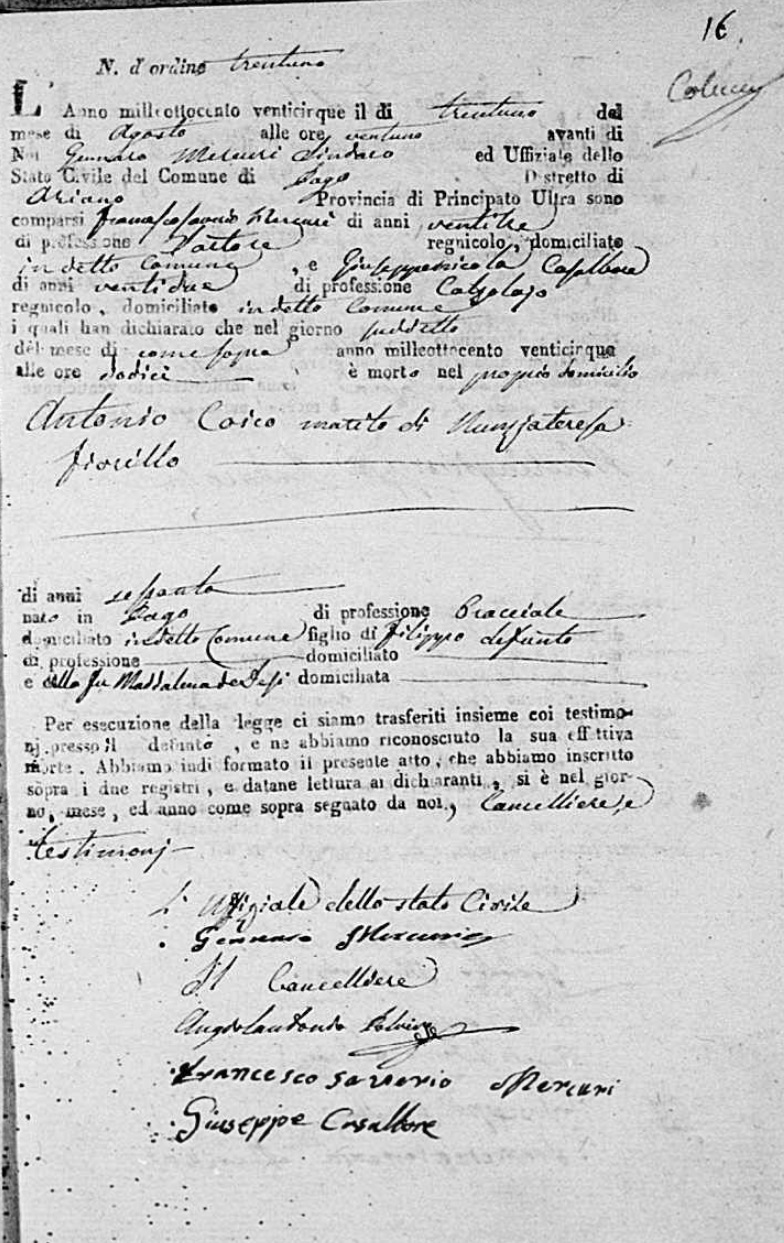 16.
N. d'ordine trentuno
L'Anno milleottocento venticinque il di trentuno del
mese di Agosto alle ore ventuno avanti di
Noi Gennaro Mercuri Sindaco ed Uffiziale dello
Stato Civile del Comune di Zago Distretto di
Ariano Provincia di Principato Ultra sono
comparsi Francescosaverio Mercuri di anni ventitre
di professione Pastore regnicolo, domiciliato
in detto Comune, e Giuseppenicola Casalbore
di anni ventidue di professione Calzolajo
regnicolo, domiciliato in detto Comune
i quali han dichiarato che nel giorno suddetto
del mese di come sopra anno milleottocento venticinque
alle ore dodici è morto nel proprio domicilio
Antonio Coico marito di Nunziateresa
Fiorillo
di anni sessanta
nato in Zago di professione Bracciale
domiciliato in detto Comune figlio di Filippo defunto
di professione domiciliato
e della fu Maddalena de domiciliata
Per esecuzione della legge ci siamo trasferiti insieme coi testimo-
nj presso il defunto, e ne abbiamo riconosciuto la sua effettiva
morte. Abbiamo indi formato il presente atto, che abbiamo inscritto
sopra i due registri, e datane lettura ai dichiaranti, si è nel gior-
no, mese, ed anno come sopra segnato da noi, Cancelliere, e
testimonj
L'Uffiziale dello stato Civile
Gennaro Mercurio
Il Cancelliere
Francesco Saverio Mercuri
Giuseppe Casalbore